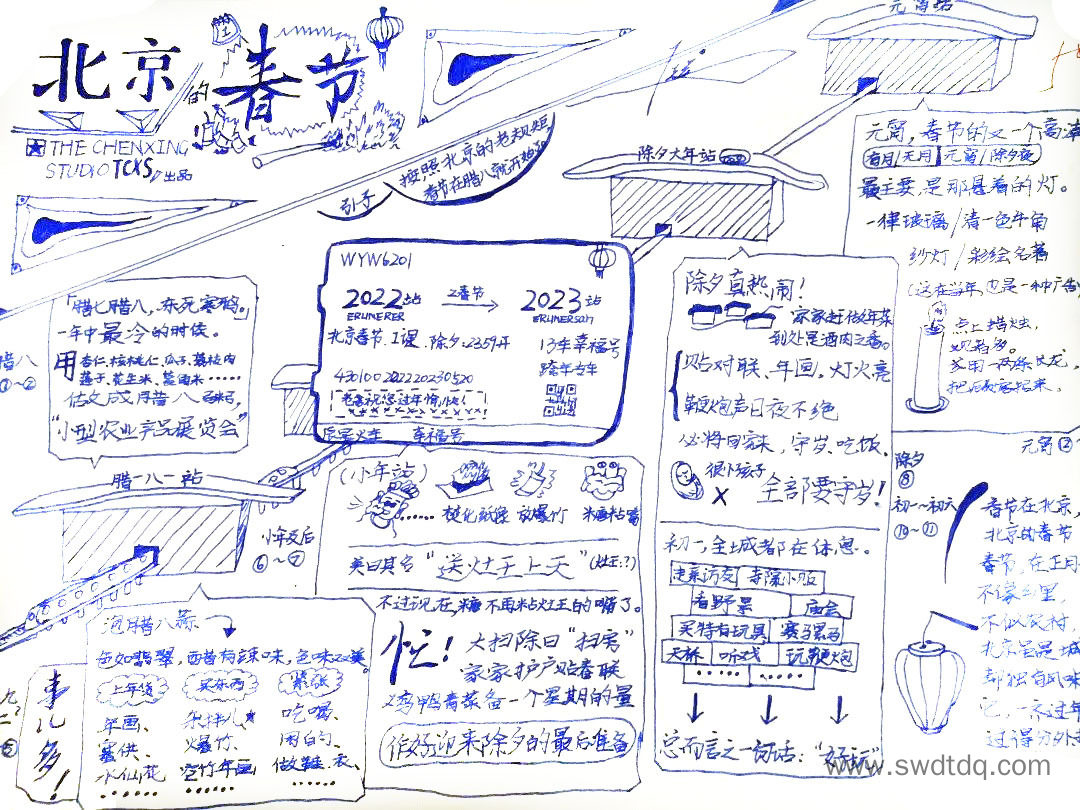 北京的春节
THE CHENXING
STUDIO TCXS出品
引子
按照北京的老规矩
春节在腊八就开始了
元宵站
除夕大年站
元宵，春节的又一个高潮
有月/无月/元宵/除夕夜
最主要是那悬着的灯。
一律玻璃/清一色牛角
纱灯/彩绘名著
(这在当年,也是一种广告)
点上蜡烛，
WYW6201
2022站
之春节
2023站
ERLINGERER
ERLINGERSAN
北京春节.1课.除夕:2359开
13年幸福号
跨年专车
老舍祝您过年愉快!
辰星火车
幸福号
「腊七腊八，冻死寒鸦。」
一年中最冷的时候。
用
杏仁、核桃仁、瓜子、荔枝肉
莲子、花生米、葡萄米……
估文成腊八粥，
"小型农业产品展览会"
腊八
①~②
腊八一站
小年及后
⑥~⑦
泡腊八蒜
色如翡翠，而醋有辣味，色味双美。
上年货
买东西
紧张
年画、
杂拌儿
吃喝、
蜜供、
爆竹、
闲的、
水仙花
空竹年画
做鞋、衣、
……
……
……
事儿多！
(小年站)
焚化纸像
放爆竹
糖粘嘴
美曰其名"送灶王上天"(灶王:?)
不过说，在，糖不再粘灶王的嘴了。
忙！
大扫除曰"扫房"
家家护户贴春联
鸡鸭青菜备一个星期的量
作好迎来除夕的最后准备
除夕真热闹！
家家赶做年菜
到处是酒肉之香。
贴对联、年画。灯火亮
鞭炮声日夜不绝
必将回家，守岁、吃饭、
很小孩子
X
全部要守岁！
初一,全城都在休息。
走亲访友
寺院小贩
看野景
庙会
买特有玩具
赛马骡马
天桥
听戏
玩鞭炮
……
……
总而言之一句话："好玩"
除夕
⑧
初一~初六
⑩~⑪
春节在北京，
北京的春节
春节，在正月
不像乡里，
不似农村，
北京它是城
都独有风味
它，一
过得分外
www.swdtdq.com